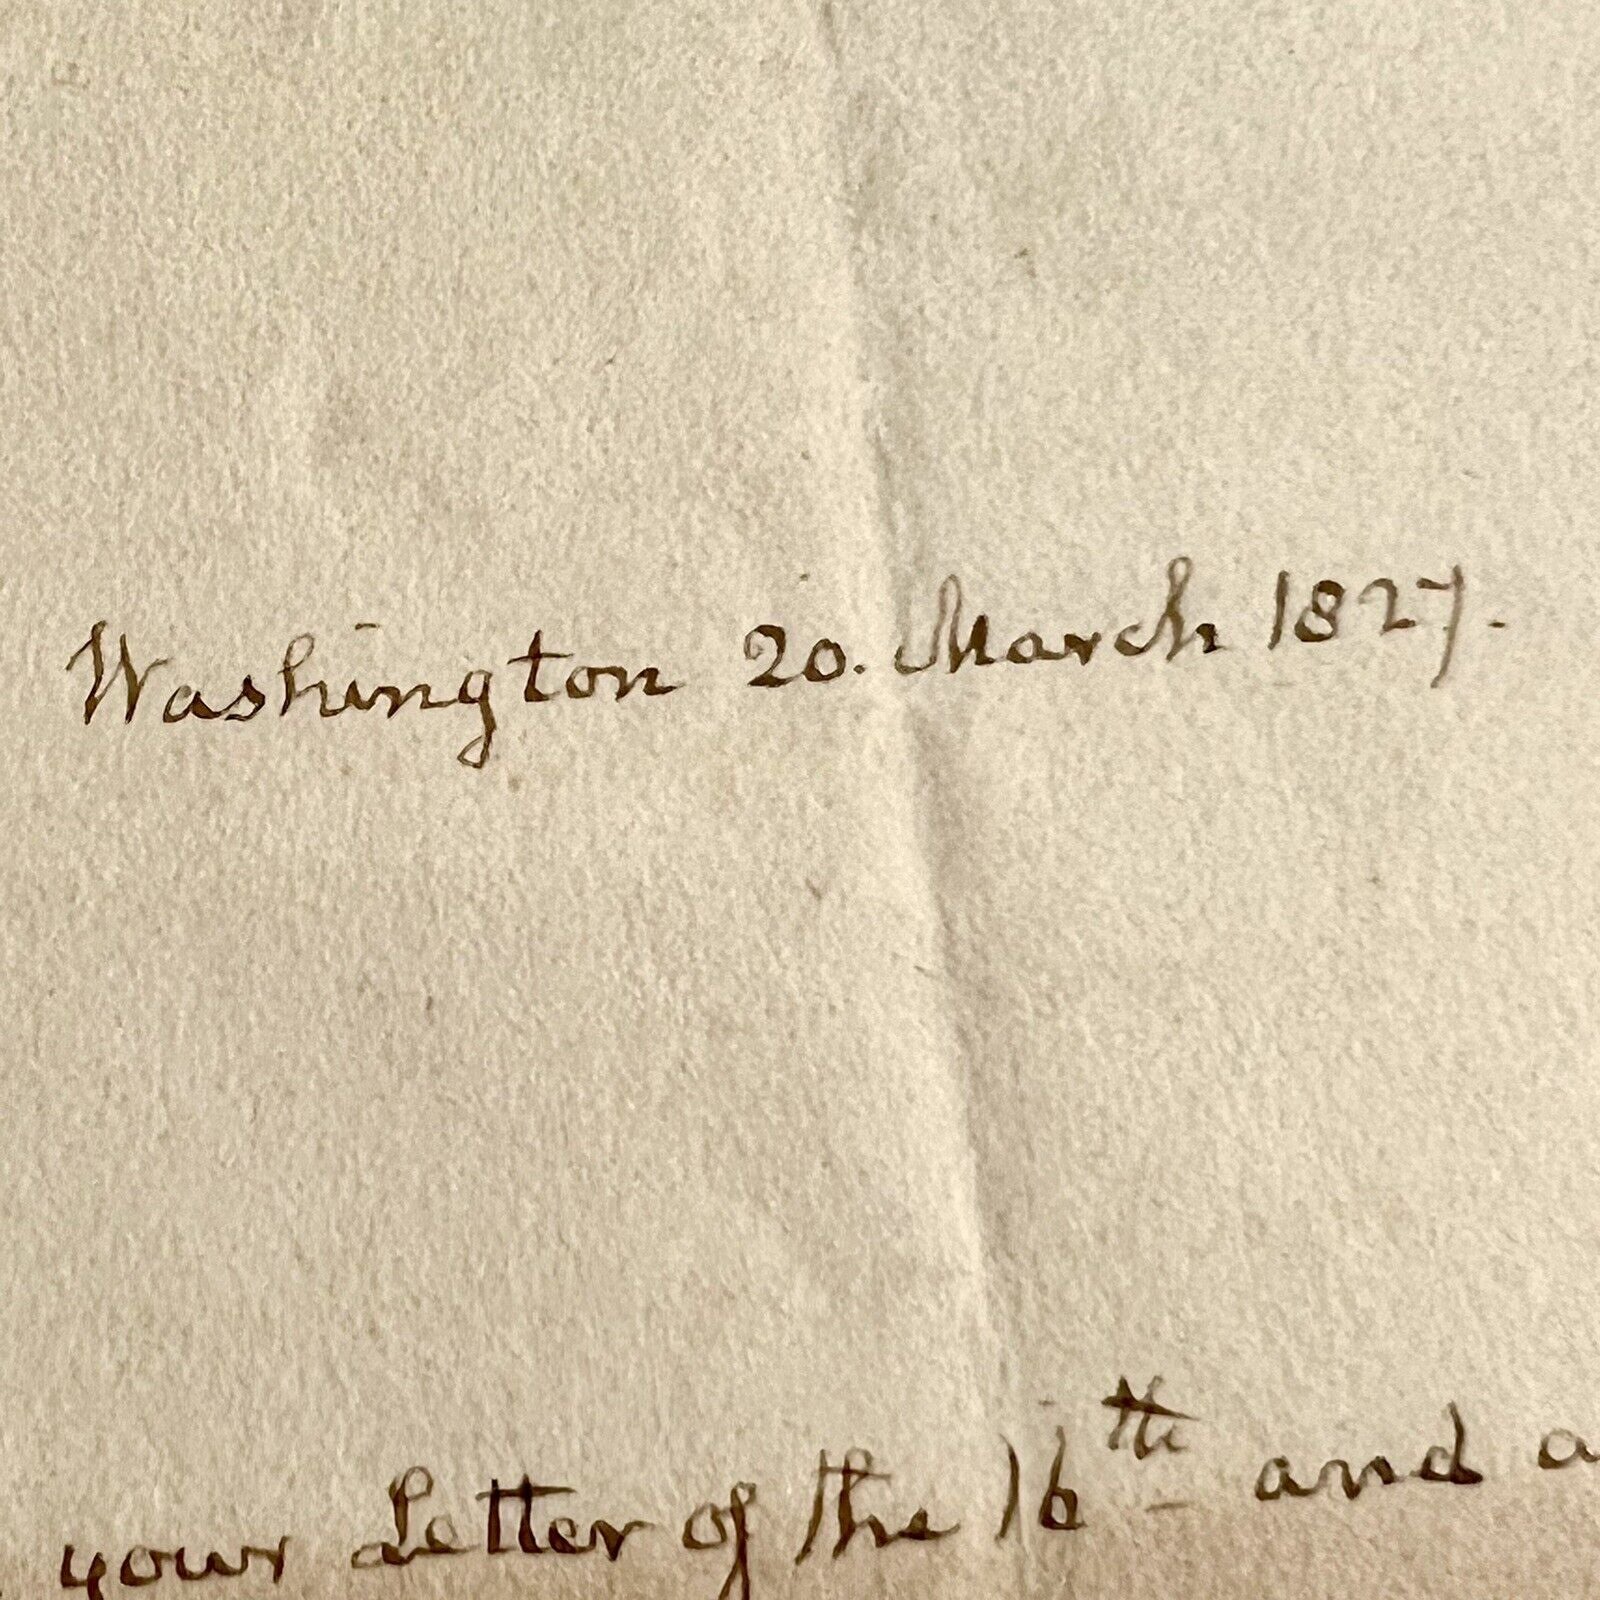 Washington 20. March 1827.
your Letter of the 16th and a